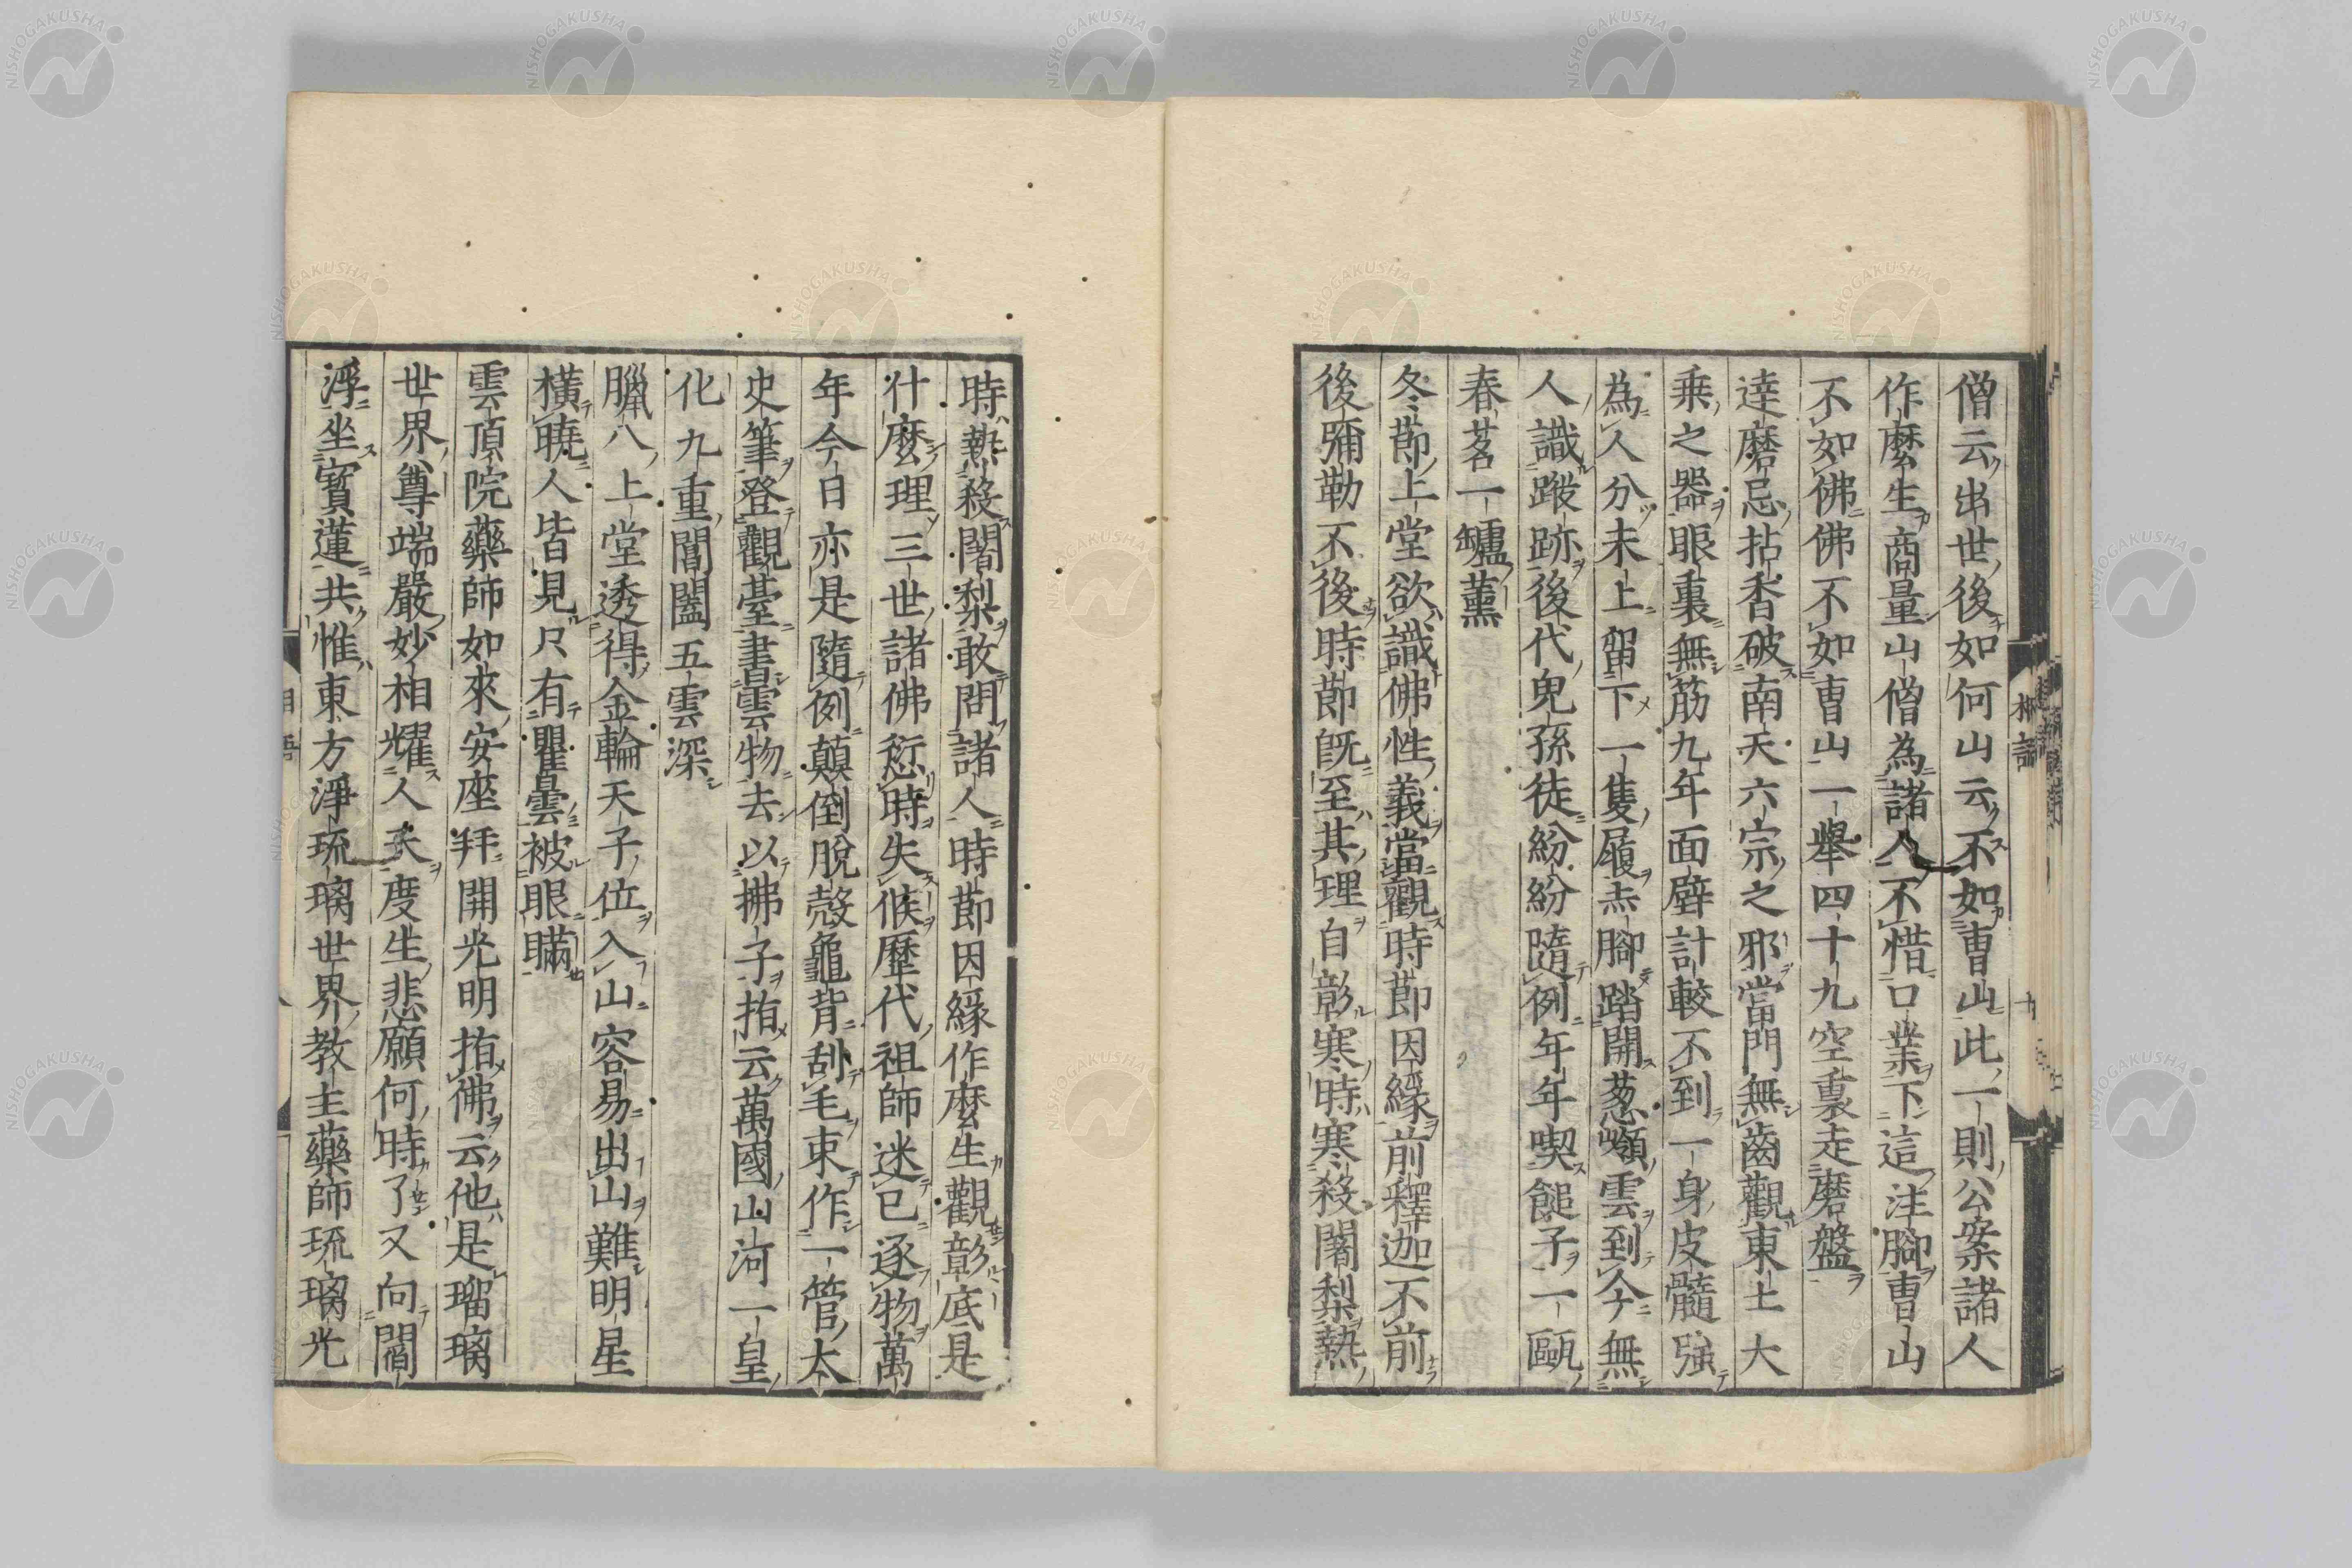 僧云出世後如何山云不如曺山此一則公案諸人
作麼生商量山僧為諸人不惜口業下這注脚曺山
不如佛佛不如曺山一舉四十九空裏走磨盤
達磨忌拈香破南天六宗之邪當門無齒觀東土大
乗之器眼裏無筋九年面壁計較不到一身皮髓強
為人分未上留下一隻履赤腳踏開葱嶺雲到今無
人識蹤跡後代兒孫徒紛紛隨例年年喫餿子一甌
春茗一爐薰
冬節上堂欲識佛性義當觀時節因緣前釋迦不前
後彌勒不後時節旣至其理自彰寒時寒殺闍梨熱
時熱殺闍梨敢問諸人時節因緣作麼生觀彰底是
什麼理三世諸佛愆時失候歷代祖師迷己逐物萬
年今日亦是隨例顛倒脫殼龜背刮毛束作一管太
史筆登觀臺書雲物去以拂子指云萬國山河一皇
化九重閶闔五雲深
臘八上堂透得金輪天子位入山容易出山難明星
橫曉人皆見只有瞿曇被眼瞞
雲頂院藥師如來安座拜開光明指佛云他是瑠璃
世界尊端嚴妙相耀人天度生悲願何時了又向閻
浮坐寶蓮共惟東方淨琉璃世界教主藥師琉璃光
NISHOGAKUSHA